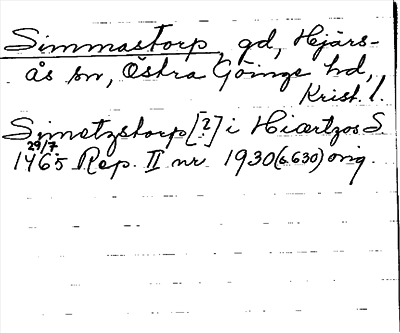 Simmastorp, gd, Hjärs-
ås sn, Östra Göinge hd,
Krist. l.
Simetzstorp [?] i Hiærtzos S.
29/7
1465 Rep. II nr 1930 (s. 630) orig.